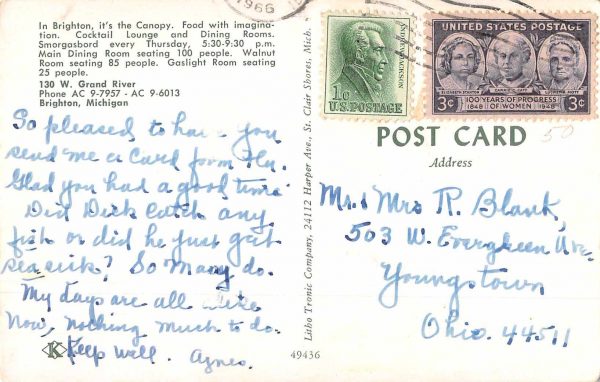 1966
In Brighton, it's the Canopy. Food with imagina-
tion. Cocktail Lounge and Dining Rooms.
Smorgasbord every Thursday, 5:30-9:30 p.m.
Main Dining Room seating 100 people. Walnut
Room seating 85 people. Gaslight Room seating
25 people.
130 W. Grand River
Phone AC 9-7957 - AC 9-6013
Brighton, Michigan
So pleased to have you
send me a Card from Fla.
Glad you had a good time.
Did Dick Catch any
fish or did he just get
seasick? So Many do.
My days are all alike
Now, nothing much to do.
K Keep well. Agnes.
Litho Tronic Company, 24112 Harper Ave., St. Clair Shores, Mich.
49436
1¢
U.S. POSTAGE
ANDREW JACKSON
UNITED STATES POSTAGE
ELIZABETH STANTON
CARRIE C. CATT
LUCRETIA MOTT
3¢ 100 YEARS OF PROGRESS 3¢
1848 OF WOMEN 1948
50
POST CARD
Address
Mr. & Mrs R. Blank,
503 W. Evergreen Ave.
Youngstown
Ohio. 44511